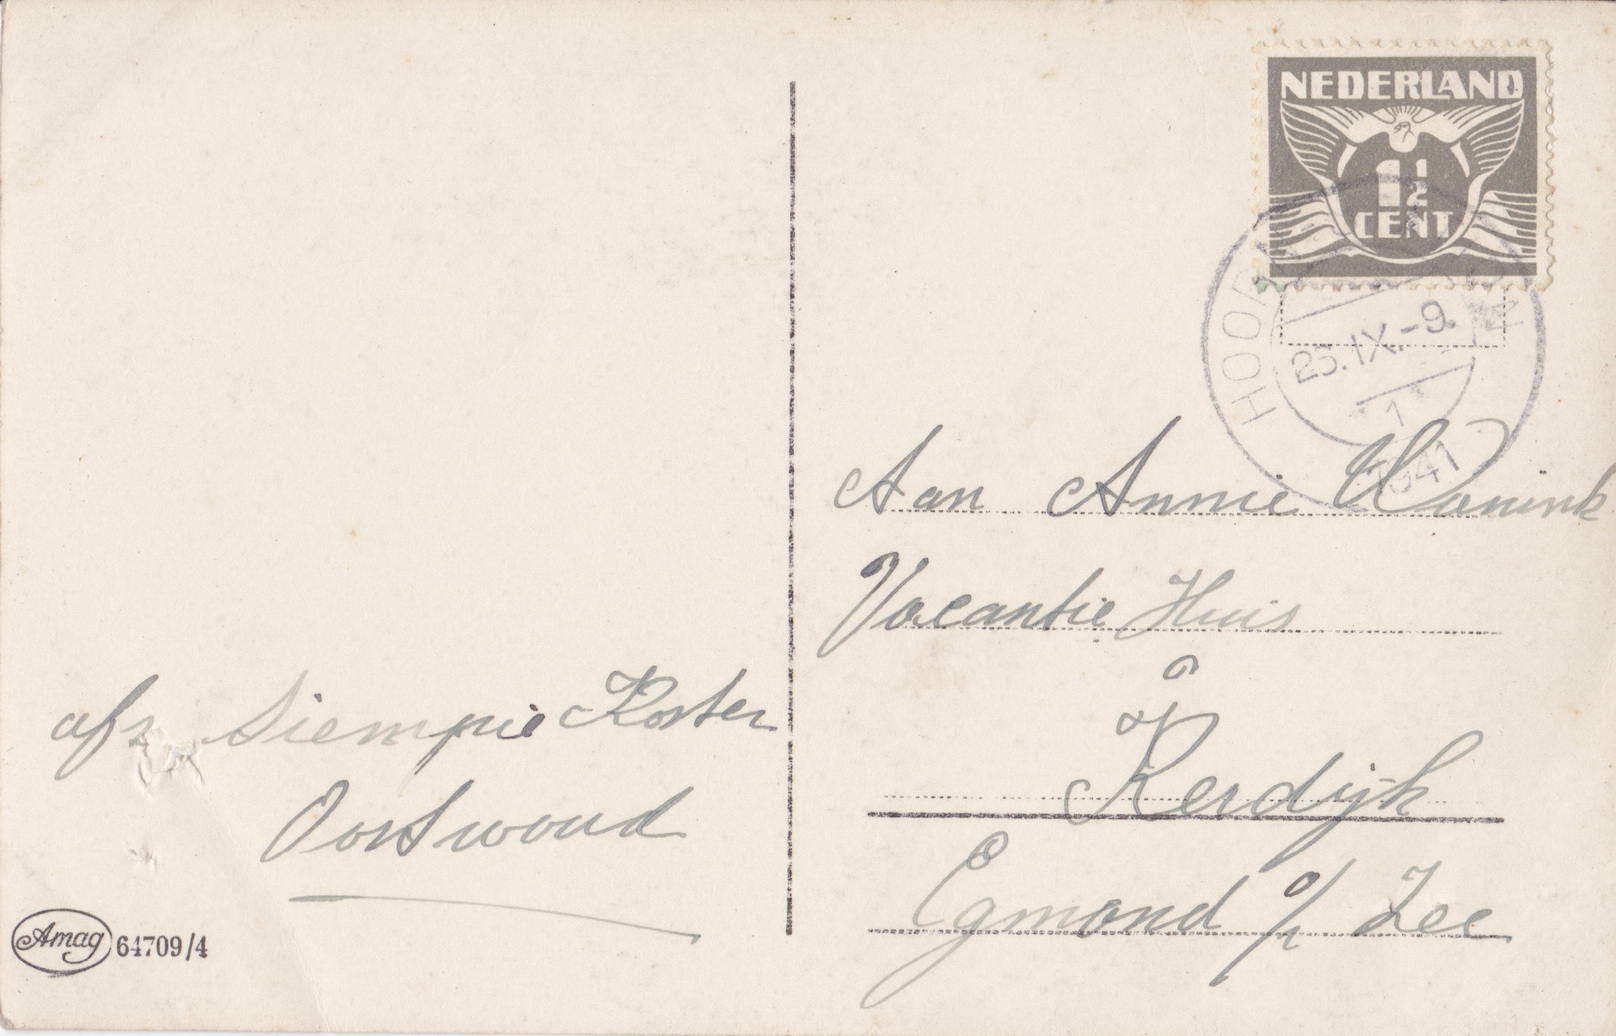 NEDERLAND
1½
CENT
HOORN
.IX.-9.
1
1941
Aan Annie Wanink
Vacantie Huis
Kerdijk
Egmond a/ Zee
afz Siempie Koster
Oostwoud
Amag 64709/4